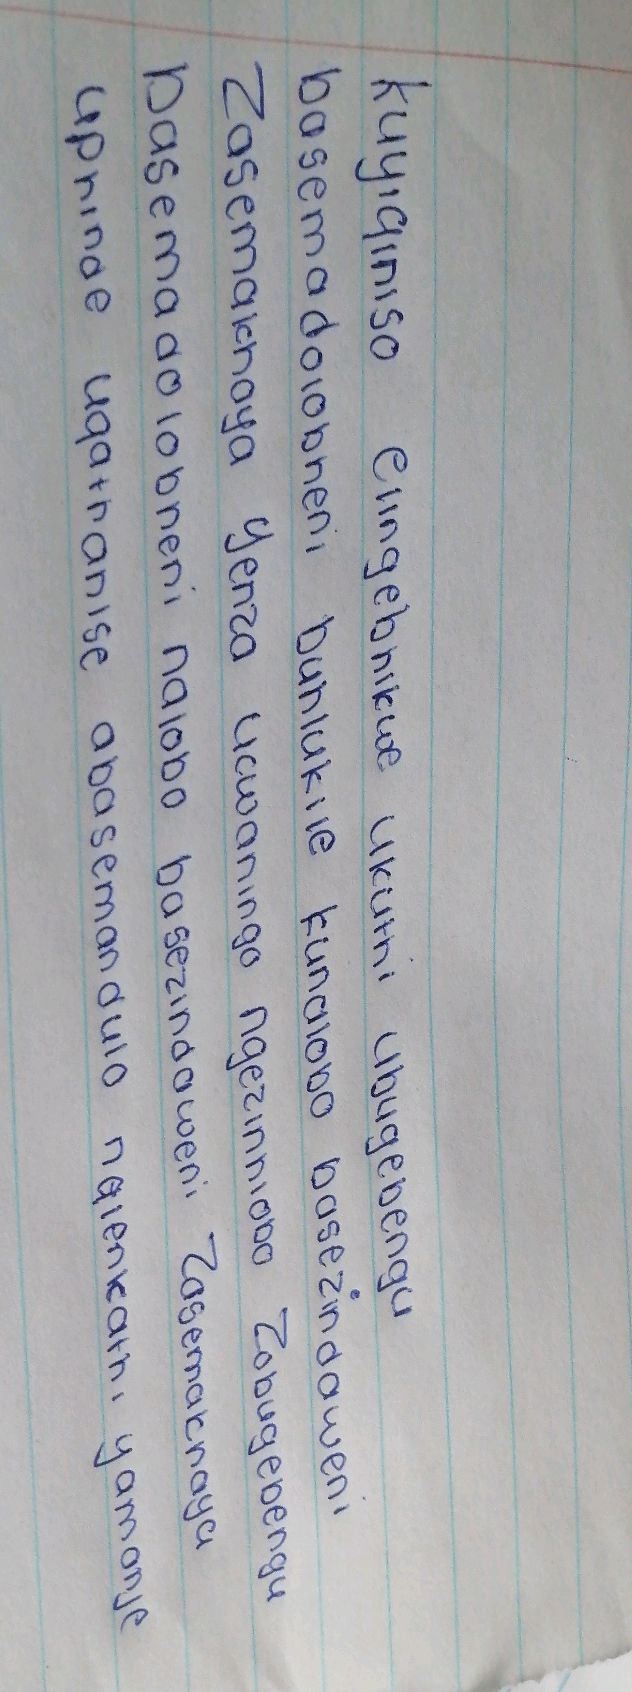 kuyiqiniso elingebhikwe ukuthi ubugebengu
basemadolobheni buhlukile kunalobo basezindaweni
Zasemakhaya yenza ucwaningo ngezinhlobo Zobugebengu
basemadolobheni nalobo basezindaweni Zasemakhaya
uphinde uqathanise abasemandulo nalenkathi yamanje